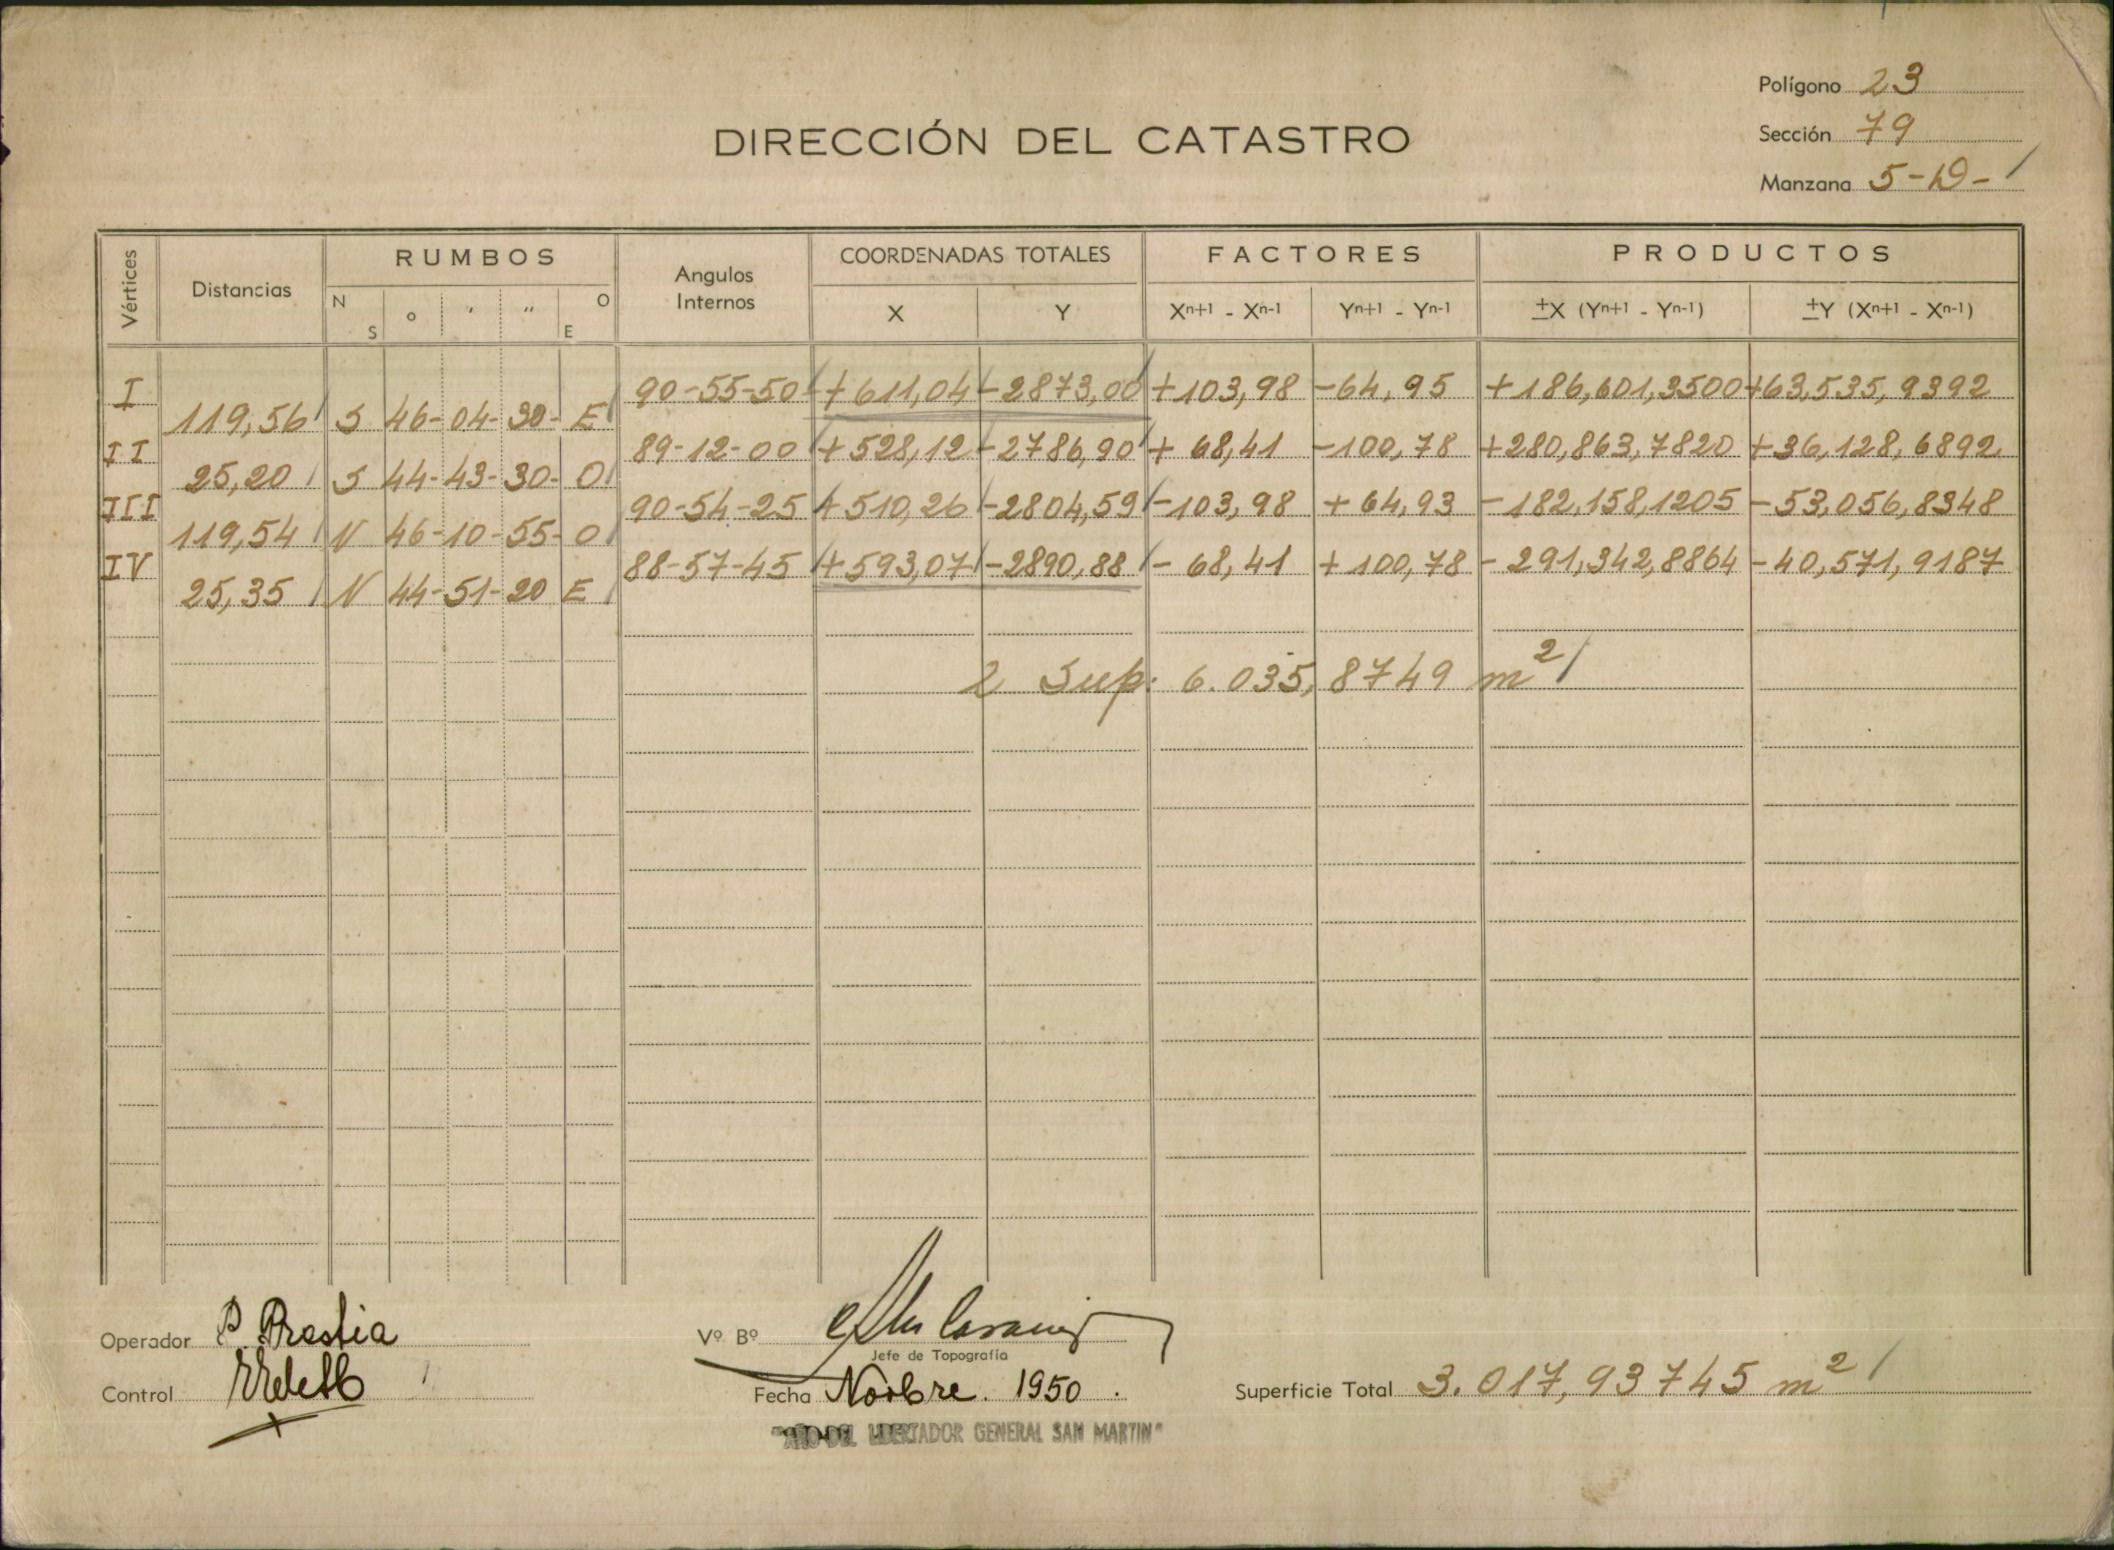 Polígono 23
DIRECCIÓN DEL CATASTRO
Sección 79
Manzana 5-19-
Vértices Distancias RUMBOS Angulos Internos COORDENADAS TOTALES FACTORES PRODUCTOS
N S o ' " O E X Y Xn+1 - Xn-1 Yn+1 - Yn-1 ±X (Yn+1 - Yn-1) ±Y (Xn+1 - Xn-1)
I 90-55-50 +611,04 -2873,00 +103,98 -64,95 +186,601,3500 +63,535,9392
119,56 S 46-04-30- E
II 89-12-00 +528,12 -2786,90 + 68,41 -100,78 +280,863,7820 +36,128,6892
25,20 S 44-43-30- O
III 90-54-25 +510,26 -2804,59 -103,98 +64,93 -182,158,1205 -53,056,8348
119,54 N 46-10-55- O
IV 88-57-45 +593,07 -2890,88 - 68,41 +100,78 -291,342,8864 -40,571,9187
25,35 N 44-51-20 E
2 Sup: 6.035,8749 m2
Operador P. Prestia
Vº Bº
Jefe de Topografía
Control
Fecha Novbre. 1950.
Superficie Total 3.017,93745 m2
"AÑO DEL LIBERTADOR GENERAL SAN MARTIN"